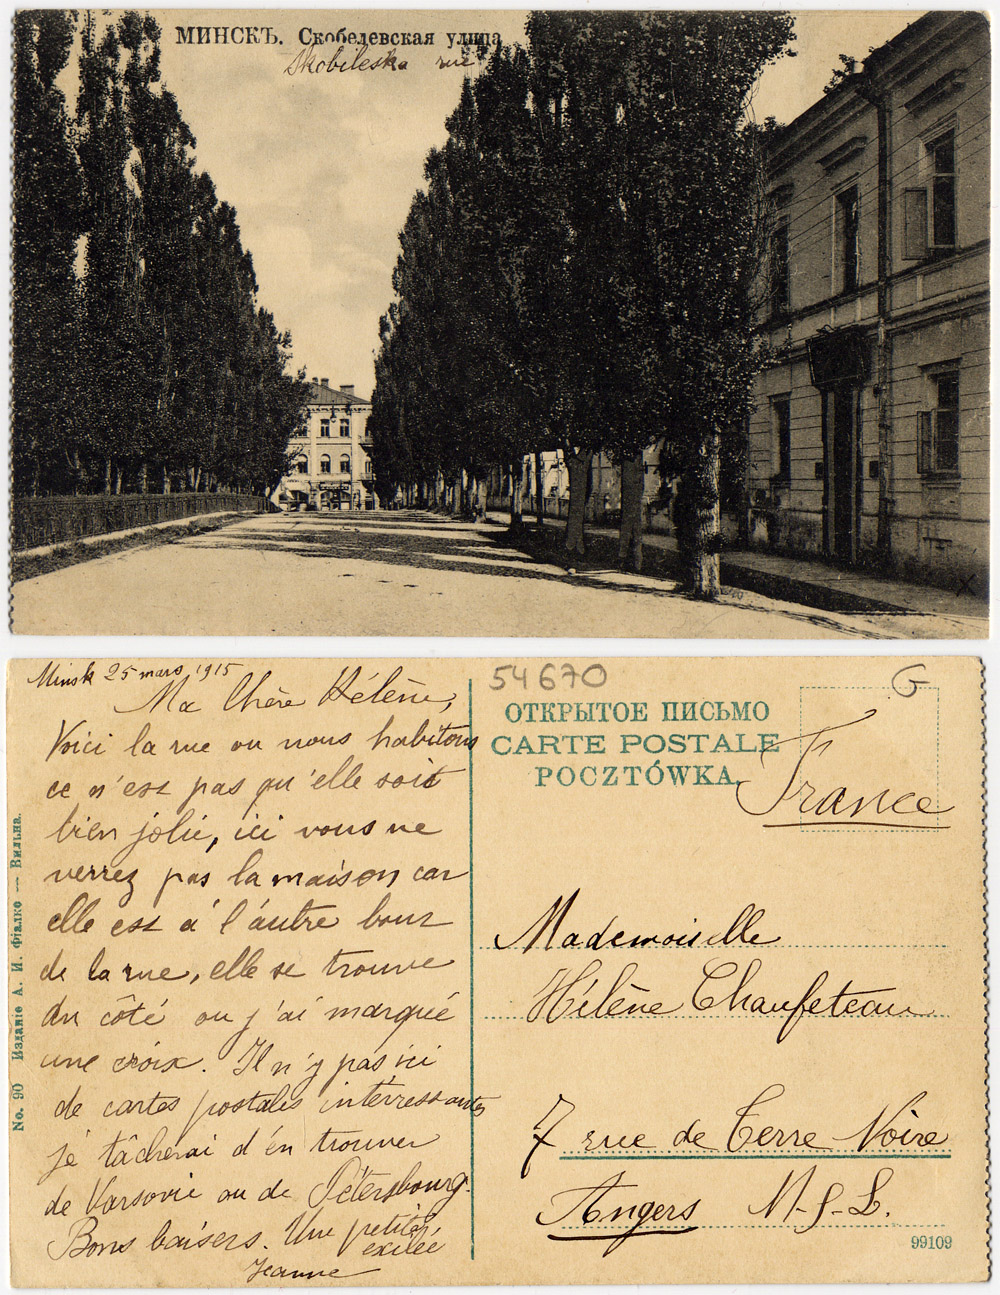 МИНСКЪ. Скобелевская улица
Skobileska rue
X
Minsk 25 mars 1915
Ma Chère Hélène,
Voici la rue ou nous habitons
ce n'est pas qu'elle soit
bien jolie, ici vous ne
verrez pas la maison car
elle est à l'autre bout
de la rue, elle se trouve
du côté ou j'ai marqué
une croix. Il n'y pas ici
de cartes postales intérressantes
je tâcherai d'en trouver
de Varsovie ou de Pétersbourg.
Bons baisers. Une petite
exilée
Jeanne
No. 90 Изданіе А. И. Фіалко — Вильна.
54670
G
ОТКРЫТОЕ ПИСЬМО
CARTE POSTALE
POCZTÓWKA.
France
Mademoiselle
Hélène Chaufeteau
7 rue de Terre Noire
Angers M-&-L.
99109